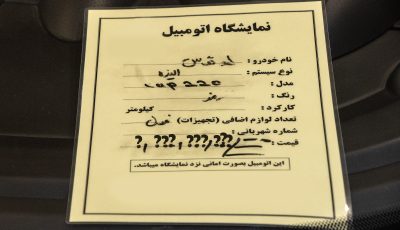 نمایشگاه اتومبیل
نام خودرو : لوتوس
نوع سیستم : الیزه
مدل : cup 220
رنگ : قرمز
کارکرد : کیلومتر
تعداد لوازم اضافی (تجهیزات) فول
شماره شهربانی :
قیمت : ?, ???, ???,???
این اتومبیل بصورت امانی نزد نمایشگاه میباشد.